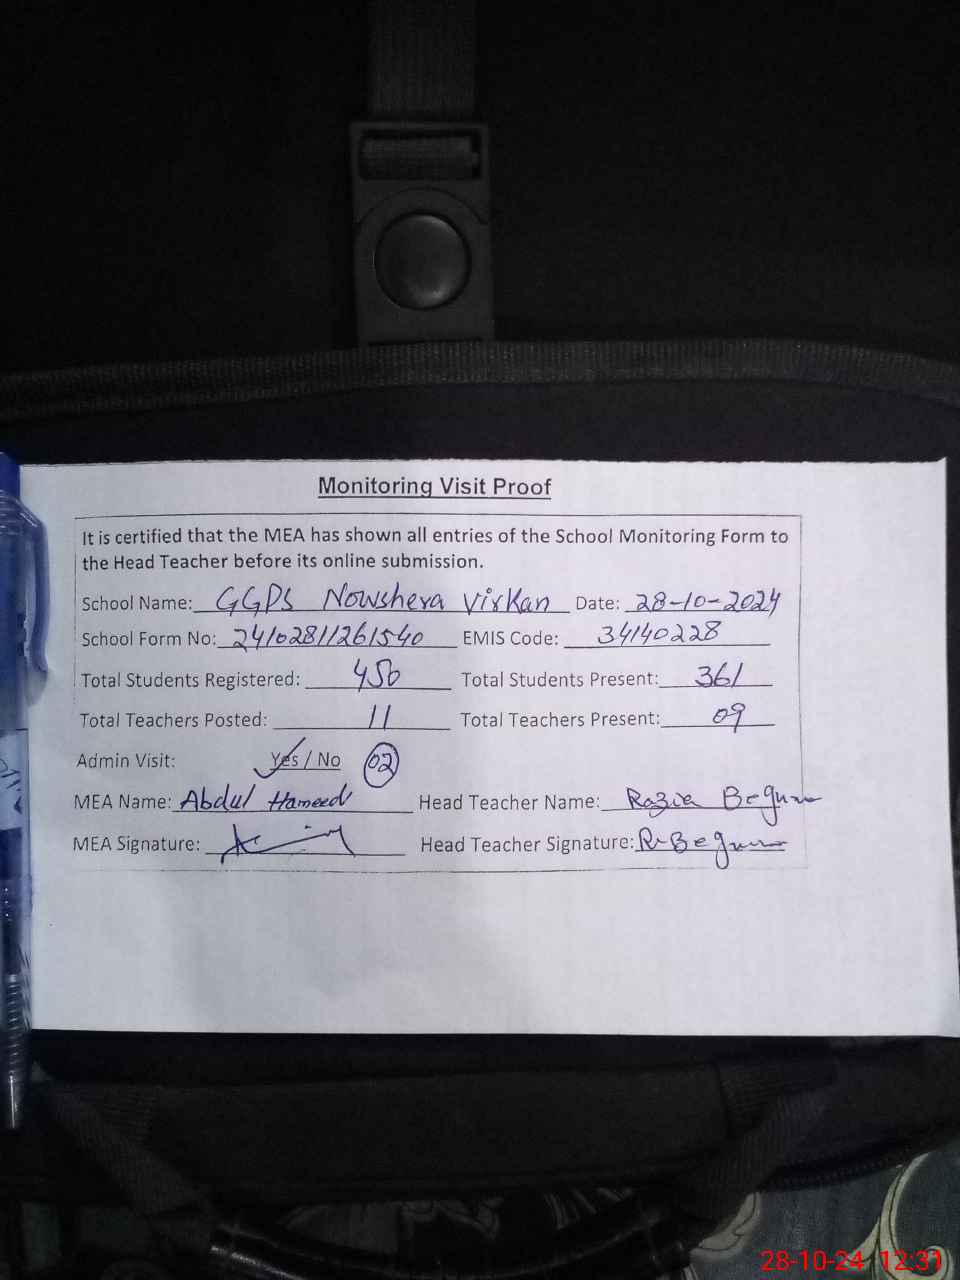 Monitoring Visit Proof
It is certified that the MEA has shown all entries of the School Monitoring Form to
the Head Teacher before its online submission.
School Name: GGPS Nowshera Virkan Date: 28-10-2024
School Form No: 2410281126540 EMIS Code: 34140228
Total Students Registered: 450 Total Students Present: 361
Total Teachers Posted: 11 Total Teachers Present: 09
Admin Visit: Yes / No 02
MEA Name: Abdul Hameed Head Teacher Name: Razia Begum
MEA Signature: Head Teacher Signature: R Begum
28-10-24 12:31